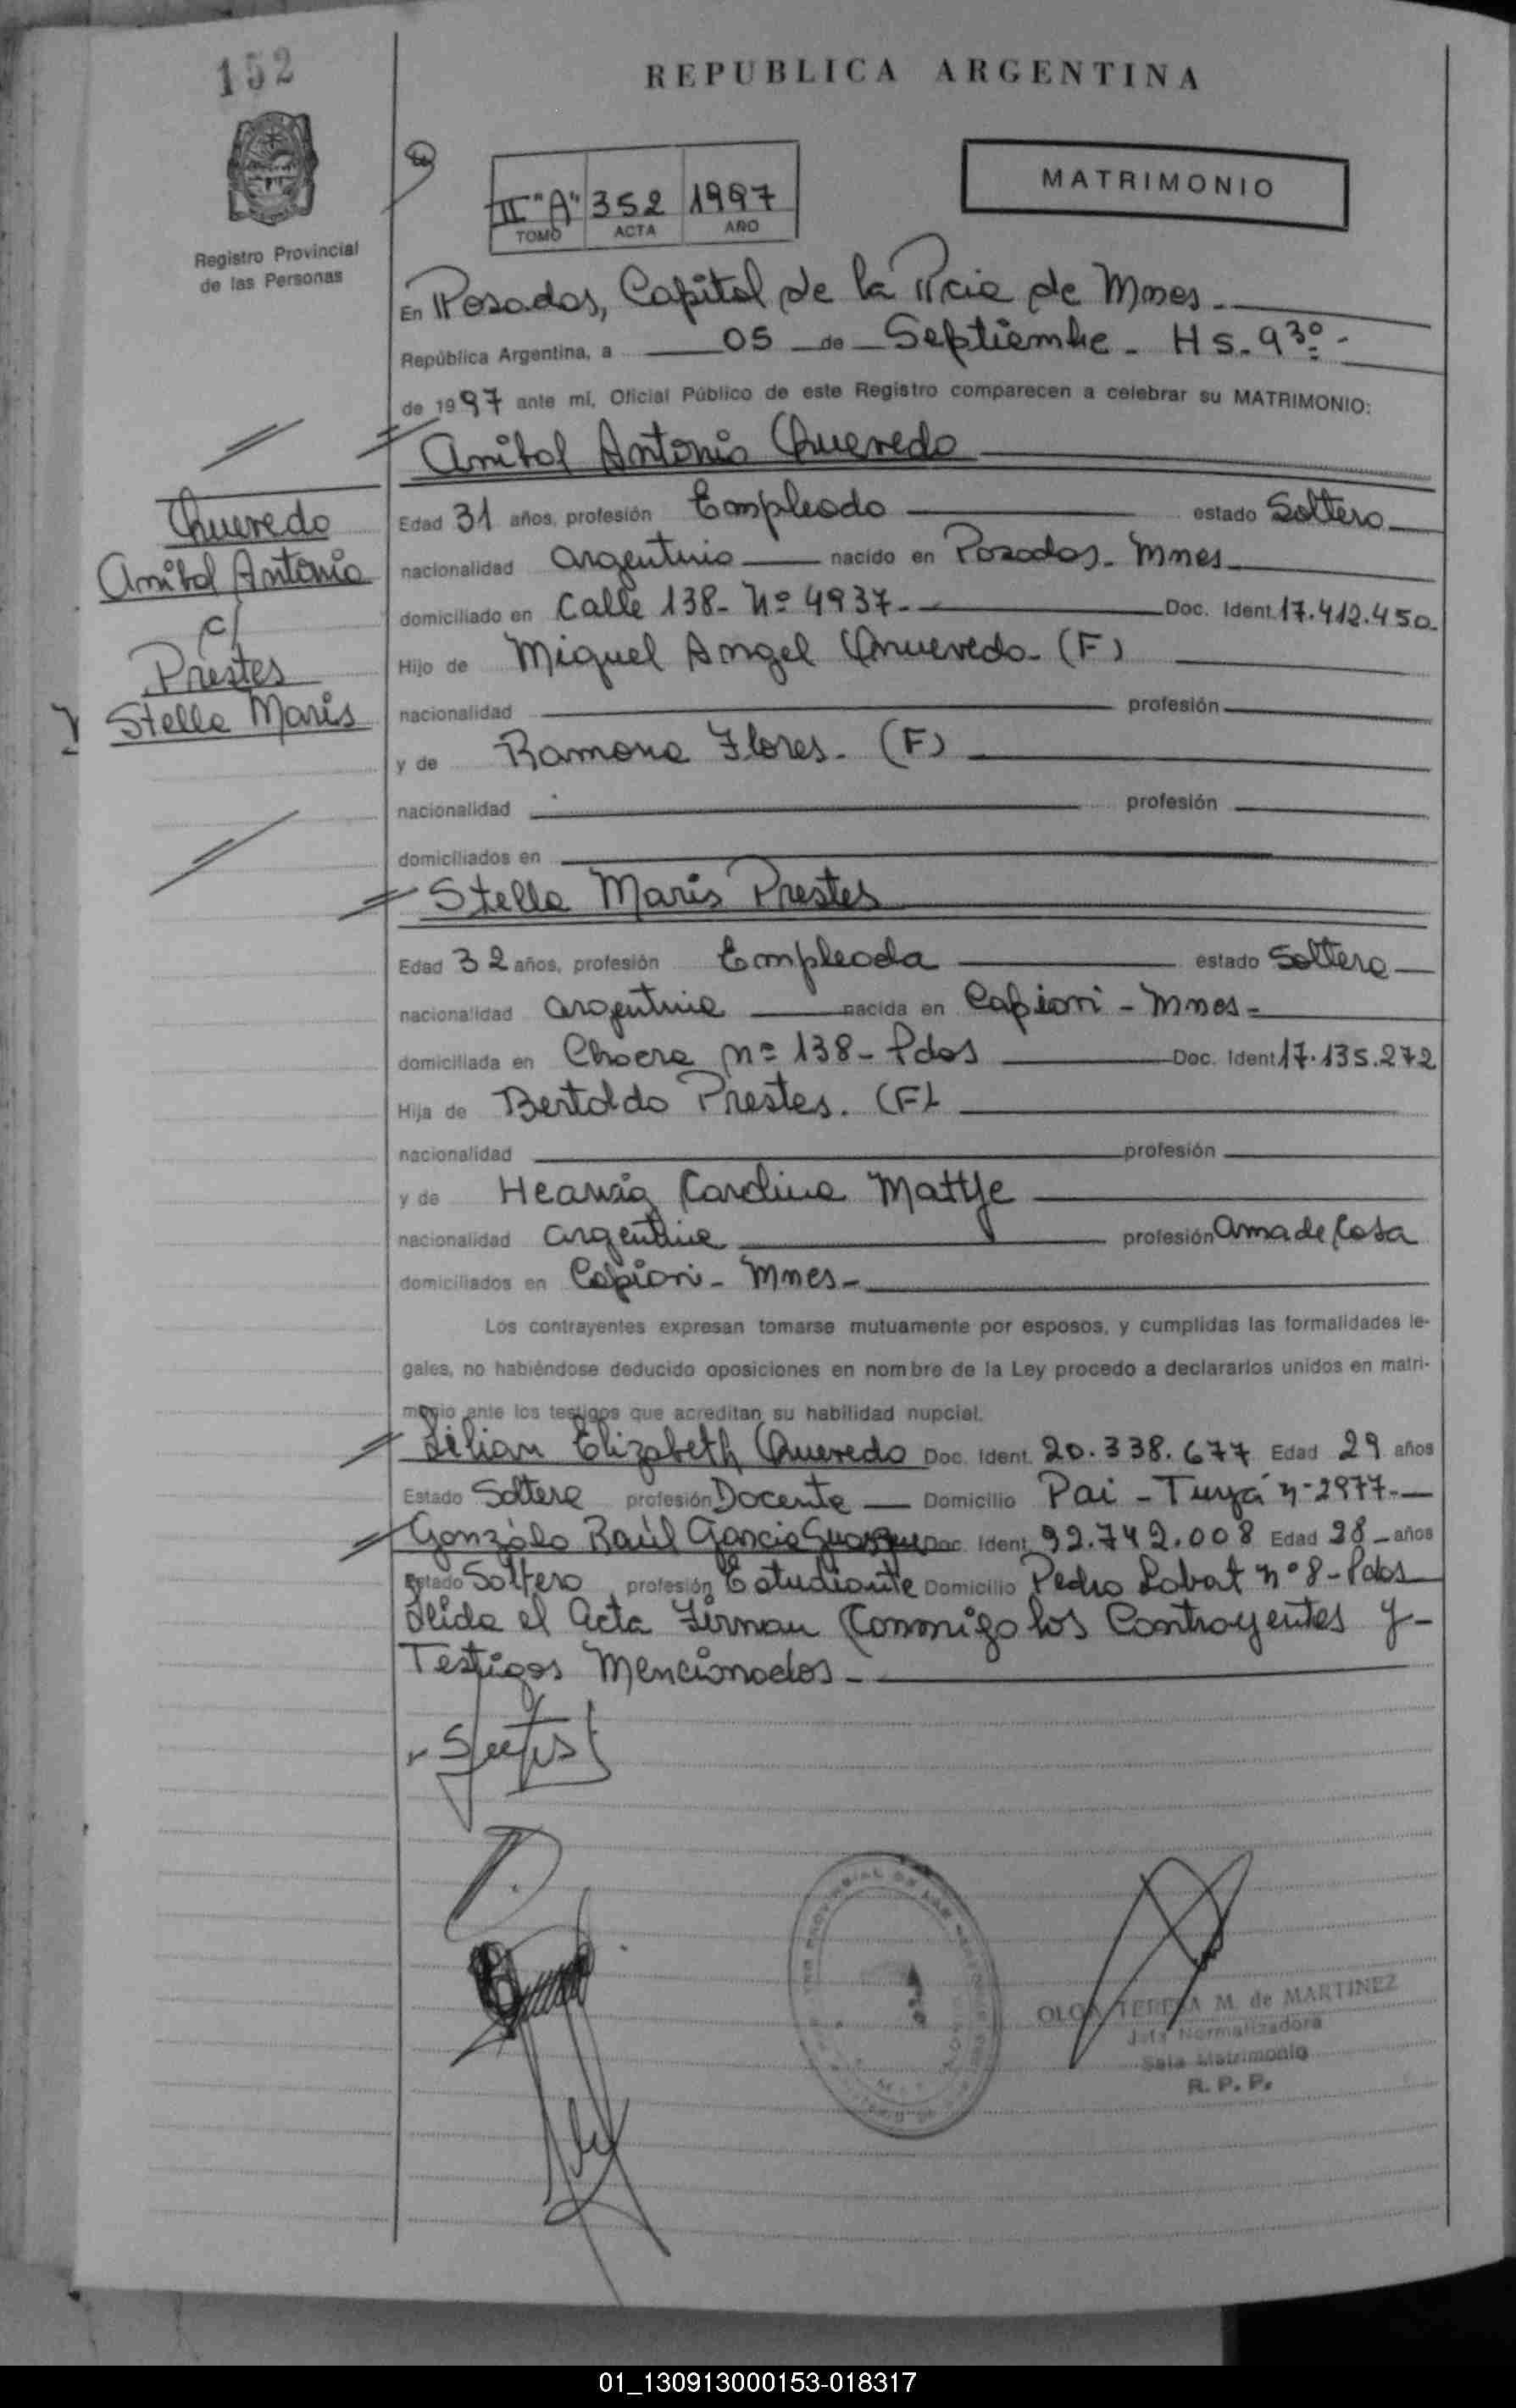 152
REPUBLICA ARGENTINA
MATRIMONIO
II "A" 352 1997
TOMO ACTA AÑO
Registro Provincial
de las Personas
En Posadas, Capital de la Pcia de Mnes.
República Argentina, a 05 de Septiembre - Hs. 9 30 -
de 1997 ante mí, Oficial Público de este Registro comparecen a celebrar su MATRIMONIO:
Anibal Antonio Quevedo
Quevedo
Anibal Antonio
c/
Prestes
Stella Maris
Edad 31 años, profesión Empleado estado Soltero
nacionalidad argentino nacido en Posadas - Mnes
domiciliado en Calle 138 - Nº 4937 - Doc. Ident. 17.412.450
Hijo de Miguel Angel Quevedo - (F)
nacionalidad profesión
y de Ramona Flores - (F)
nacionalidad profesión
domiciliados en
Stella Maris Prestes
Edad 32 años, profesión Empleada estado Soltera
nacionalidad argentina nacida en Capiovi - Mnes -
domiciliada en Chacra nº 138 - Pdas Doc. Ident. 17.135.272
Hija de Bertoldo Prestes. (F)
nacionalidad profesión
y de Carolina Mattje
nacionalidad argentina profesión ama de Casa
domiciliados en Capiovi - Mnes -
Los contrayentes expresan tomarse mutuamente por esposos, y cumplidas las formalidades le-
gales, no habiéndose deducido oposiciones en nombre de la Ley procedo a declararlos unidos en matri-
monio ante los testigos que acreditan su habilidad nupcial.
Lilian Elizabeth Quevedo Doc. Ident. 20.338.677 Edad 29 años
Estado Soltera profesión Docente Domicilio Pai - Turya nº 2977 -
Gonzálo Raúl Garcia Doc. Ident. 92.742.008 Edad 28 años
Estado Soltero profesión Estudiante Domicilio Pedro Labat nº 8 - Pdas
Leida el Acta Firman Conmigo los Contrayentes y -
Testigos Mencionados -
OLGA TERESA M. de MARTINEZ
Jefa Normalizadora
Sala Matrimonio
R. P. P.
01_130913000153-018317